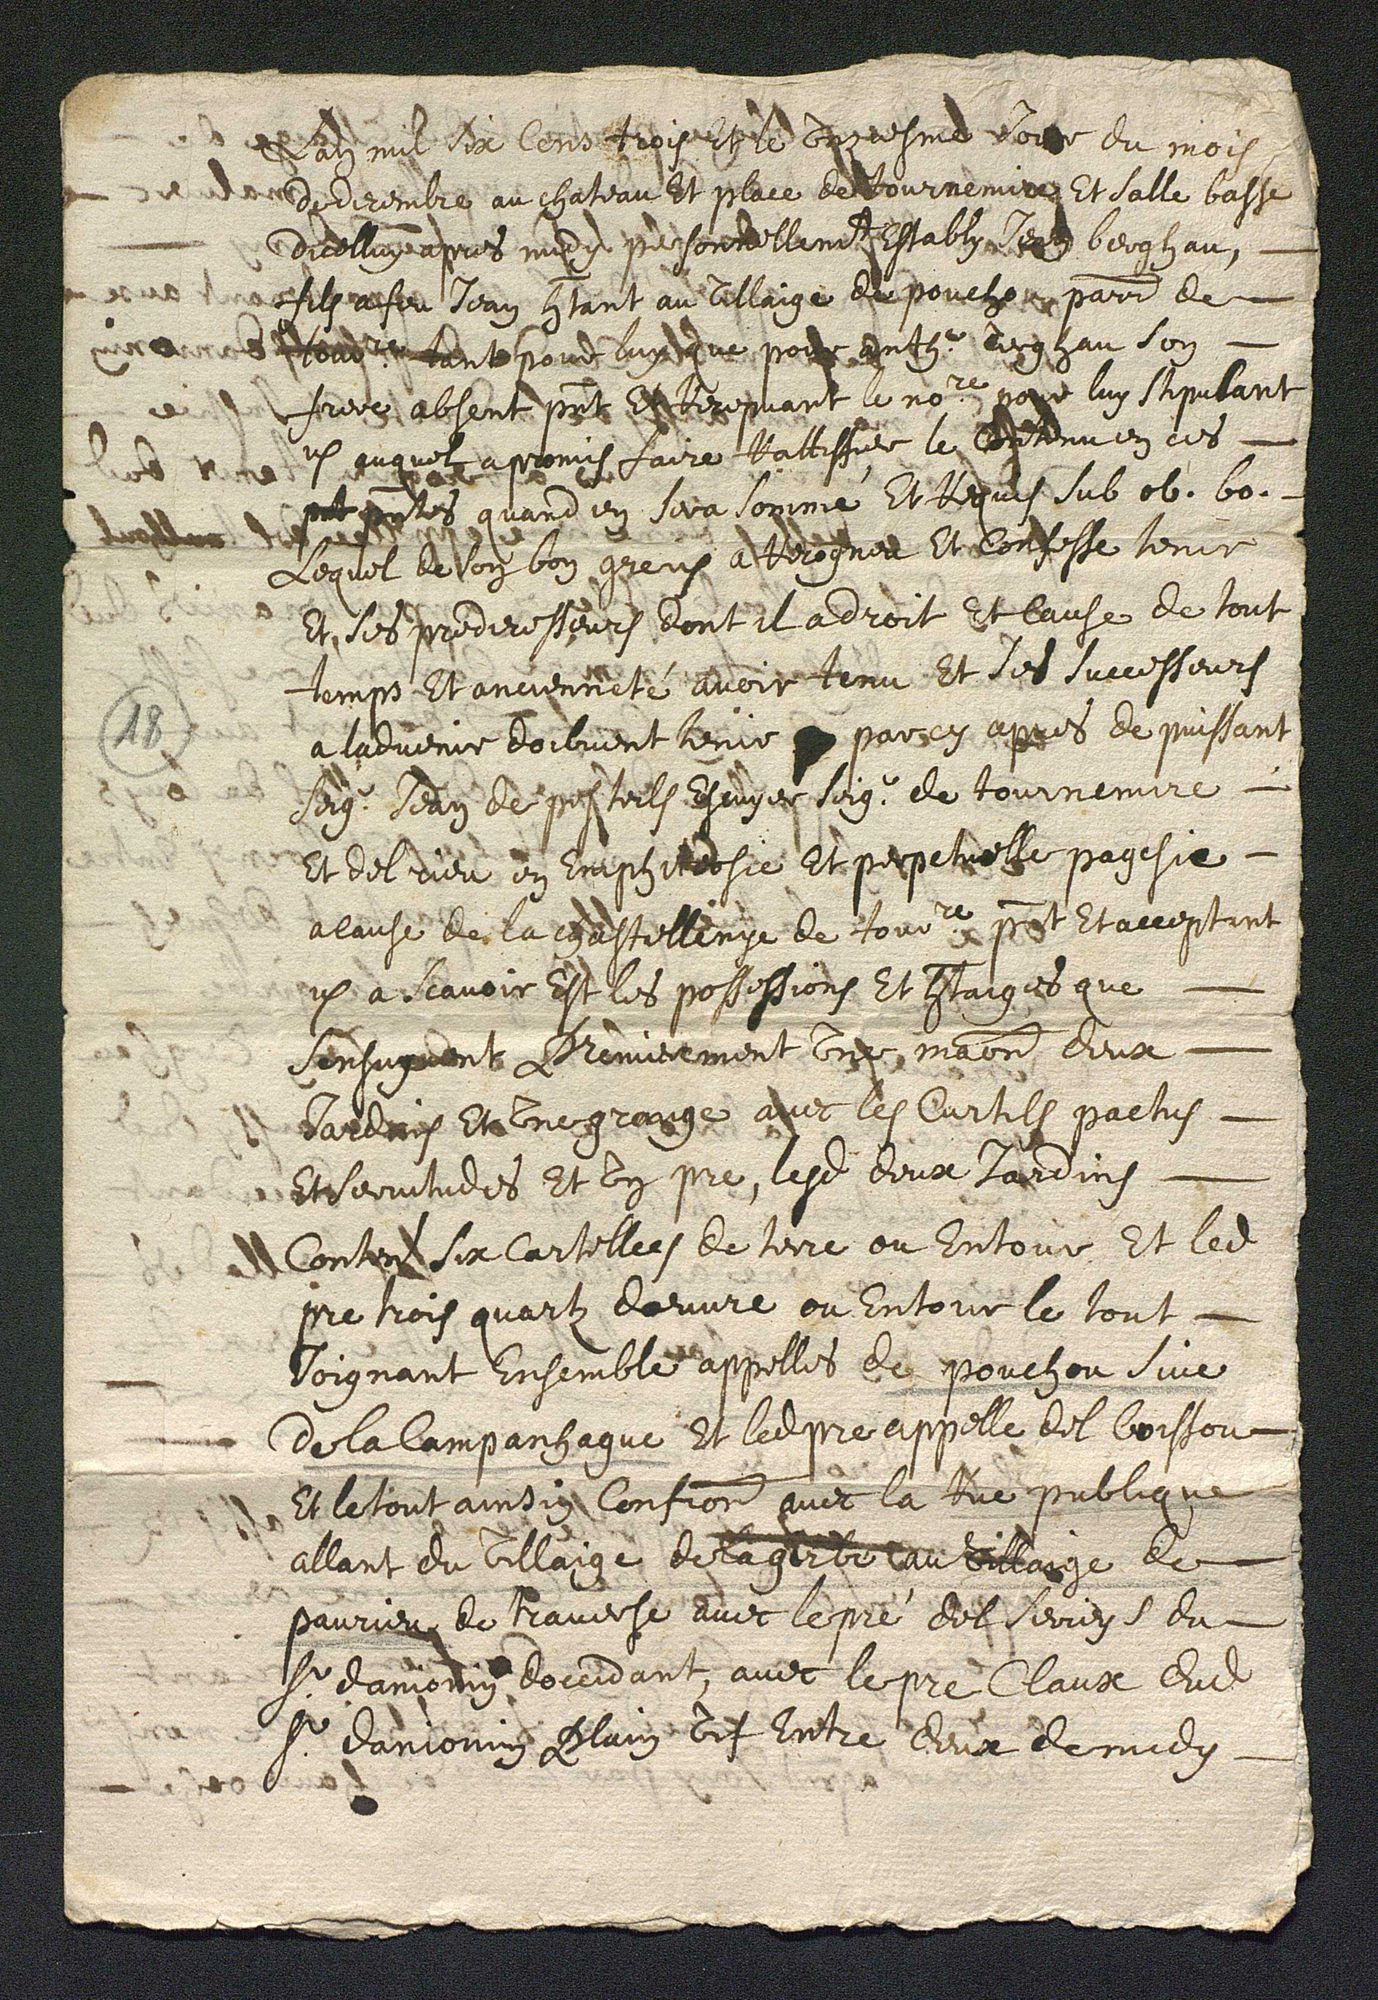 Lan mil six Cens trois Et le Unziesme Jour du mois
de decembre au chateau Et place de tournemire Et salle basse
dicelluy apres midy personnellemt Estably Jean berghau,
fils a feu Jean htant au Villaige de pouchou parr de
tour.re tant pour luy que pour anth.e berghau son
frere absent pnt Et Recepvant le no.re pour luy stipulant
auquel a promis faire Rattiffier le Contenu en ces
pntes quand en sera sommé Et Requis sub ob. bo.
Lequel de son bon gre a Recogneu Et Confesse tenir
Et ses predecesseurs dont il a droit Et Cause de tout
temps Et ancienneté avoir tenu Et ses successeurs
a ladvenir doibvent tenir par cy apres de puissant
18
seigr. Jean de pestels Escuyer seigr. de tournemire
Et del rieu en Emphiteosie Et perpetuelle pagesie
a cause de la chastellenye de tour.re pnt Et acceptant
a scavoir Est les possessions Et htaiges que
sensuyvent Premierement Une maon deux
Jardins Et Une grange avec les Curtils pactus
Et servitudes Et Un pre, lesd deux Jardins
Conten Six Cartellees de terre ou Entour Et led
pre trois quartz dœuvre ou Entour le tout
Joignant Ensemble appelles de pouchou sive
de la Campanhague Et led pre appelle del boissou
Et le tout ainsin Confron avec la Rue publique
allant du Villaige de la girbe au Villaige de
paurieu de traverse avec le pré del serieys du
sr. danjouin doccidant, avec le pre Claux dud
sr. danjouin Plain Vif Entre deux de midy